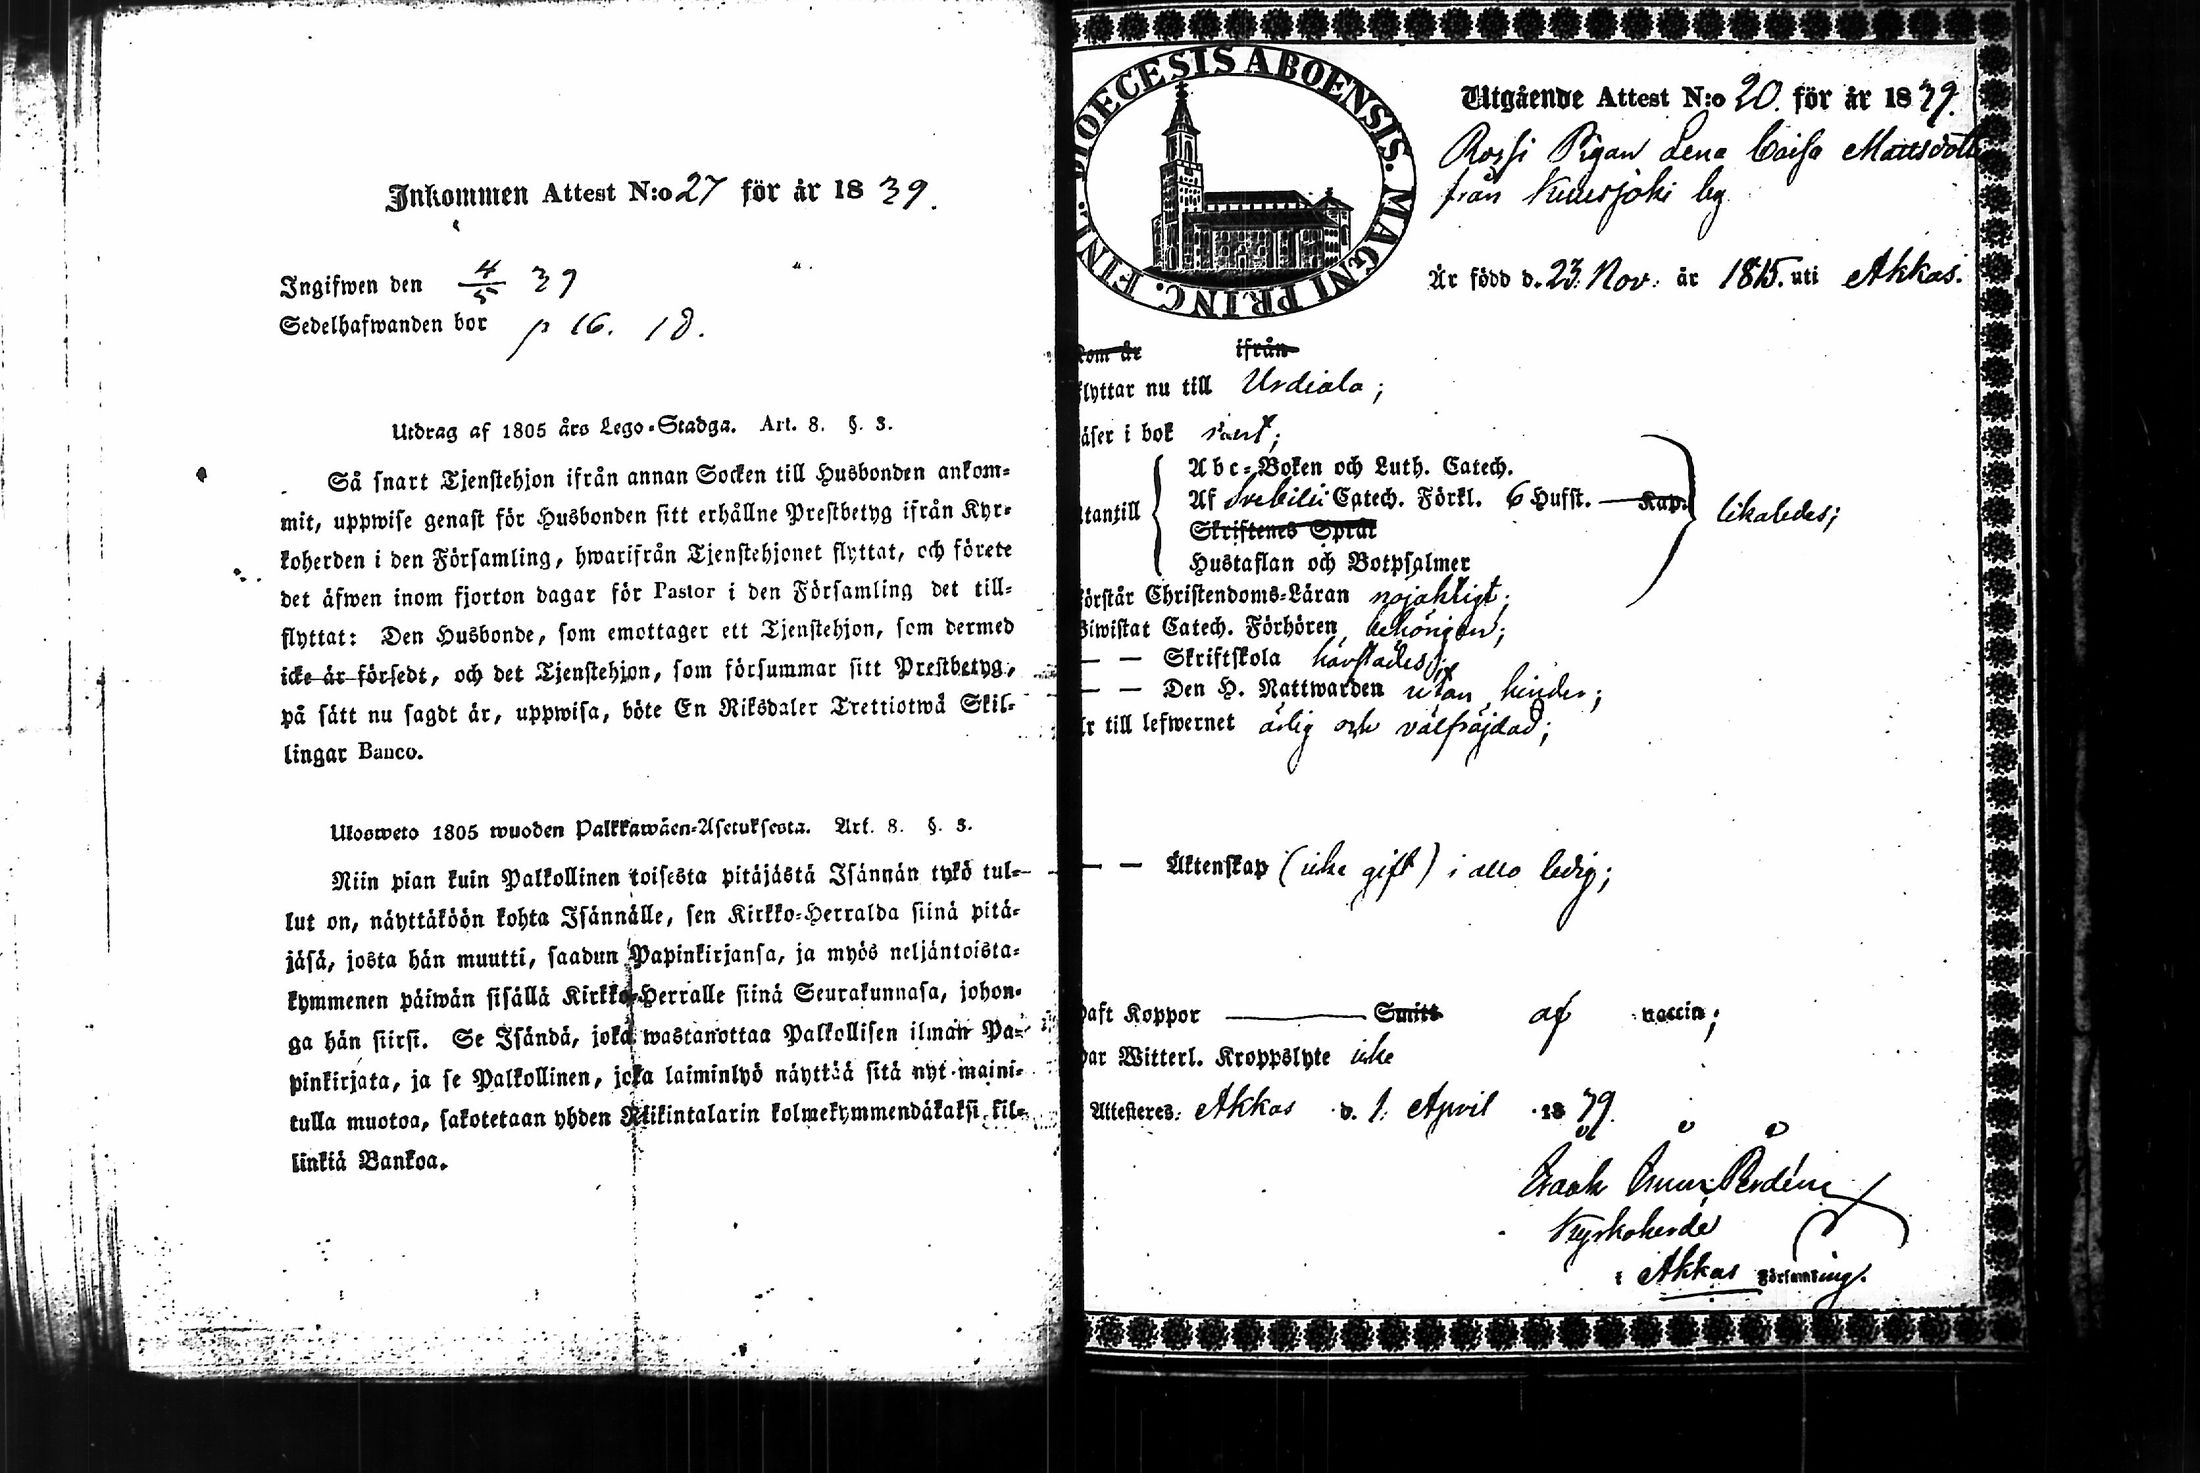 Inkommen Attest N:o 27 för år 1839.
Ingifwen den 4/5 39
Sedelhafwanden bor p 16. 18.
Utdrag af 1805 års Lego-Stadga. Art. 8. §. 3.
Så snart Tjenstehjon ifrån annan Socken till Husbonden ankom-
mit, uppwise genast för Husbonden sitt erhållne Prestbetyg ifrån Kyr-
koherden i den Församling, hwarifrån Tjenstehjonet flyttat, och förete
det äfwen inom fjorton dagar för Pastor i den Församling det till-
flyttat: Den Husbonde, som emottager ett Tjenstehjon, som dermed
icke är försedt, och det Tjenstehjon, som försummar sitt Prestbetyg,
på sätt nu sagdt är, uppwisa, böte En Riksdaler Trettiotwå Skil-
lingar Banco.
Ulosweto 1805 wuoden Palkkawäen-Asetuksesta. Art. 8. §. 3.
Niin pian kuin Palkollinen toisesta pitäjästä Isännän tykö tul-
lut on, näyttäköön kohta Isännälle, sen Kirkko-Herralda siinä pitä-
jäsä, josta hän muutti, saadun Papinkirjansa, ja myös neljäntoista-
kymmenen päiwän sisällä Kirkko-Herralle siinä Seurakunnasa, johon-
ga hän siirsi. Se Isändä, joka wastanottaa Palkollisen ilman Pa-
pinkirjata, ja se Palkollinen, joka laiminlyö näyttää sitä nyt maini-
tulla muotoa, sakotetaan yhden Rikintalarin kolmekymmendäkaksi kil-
linkiä Bankoa.
DIOECESIS ABOENSIS. MAGNI PRINC. FINL.
Utgående Attest N:o 20. för år 1839.
Rossi Pigan Lena Caisa Mattsdott
från by
Är född d. 23. Nov. år 1815. uti Akkas.
kom år ifrån
flyttar nu till Urdiala;
läser i bok
Abc-Boken och Luth. Catech.
utantill Af Svebilii Catech. Förkl. 6 Hufst. Kap. likaledes;
Skriftenes Språk
Hustaflan och Botpsalmer
förstår Christendoms-Läran nöjaktigt;
Biwistat Catech. Förhören behörigen;
— — Skriftskola härstädes;
— — Den H. Nattwarden utan hinder;
Är till lefwernet ärlig och välfräjdad;
— — Äktenskap (icke gift) i allo ledig;
haft Koppor Smitt af vaccin;
har Witterl. Kroppslyte icke
Attesteras: Akkas d. 1. April 1839.
Kyrkoherde
i Akkas Församling.